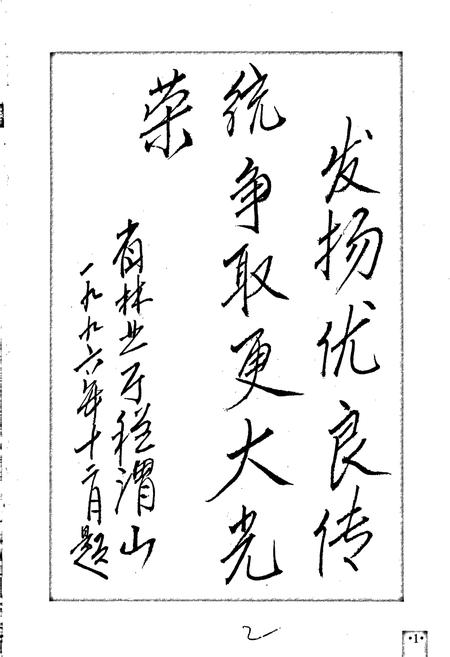 发扬优良传
统争取更大光
荣
省林业厅程渭山
一九九六年十二月题
2
·1·